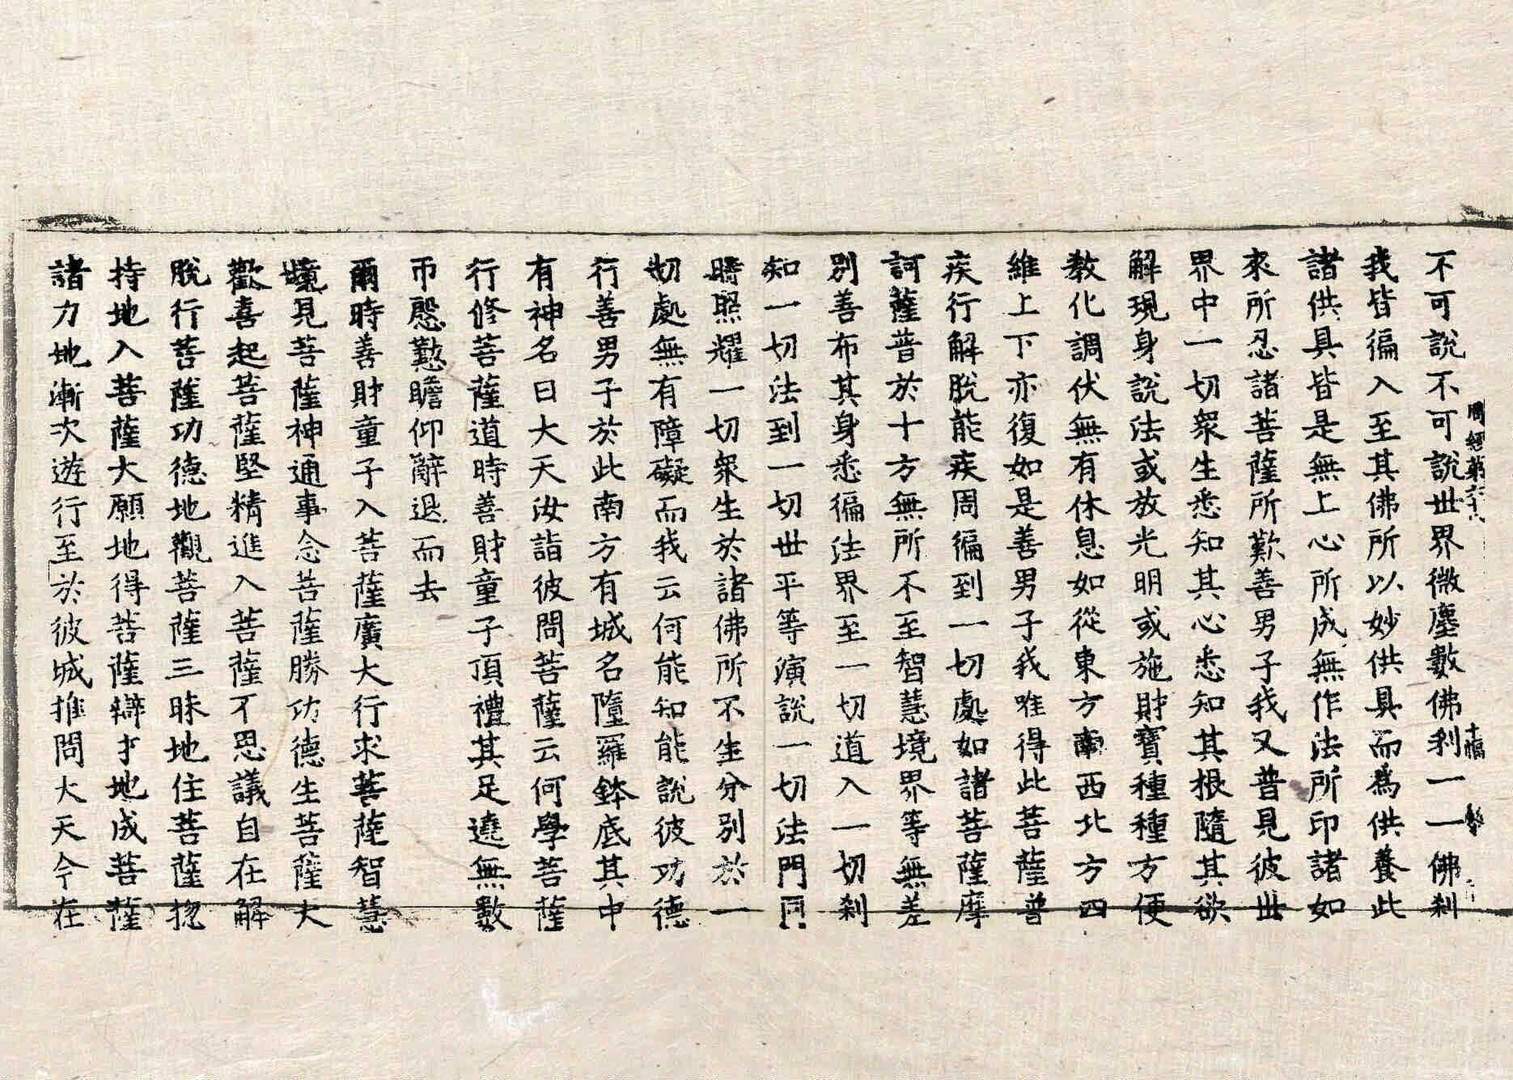 不可說不可說世界微塵數佛刹一一佛刹
我皆徧入至其佛所以妙供具而爲供養此
諸供具皆是無上心所成無作法所印諸如
來所忍諸菩薩所歎善男子我又普見彼世
界中一切衆生悉知其心悉知其根隨其欲
解現身說法或放光明或施財寶種種方便
教化調伏無有休息如從東方南西北方四
維上下亦復如是善男子我唯得此菩薩普
疾行解脫能疾周徧到一切處如諸菩薩摩
訶薩普於十方無所不至智慧境界等無差
別善布其身悉徧法界至一切道入一切刹
知一切法到一切世平等演說一切法門同
時照耀一切衆生於諸佛所不生分別於一
切處無有障礙而我云何能知能說彼功德
行善男子於此南方有城名墮羅鉢底其中
有神名曰大天汝詣彼問菩薩云何學菩薩
行修菩薩道時善財童子頂禮其足遶無數
帀慇懃瞻仰辭退而去
爾時善財童子入菩薩廣大行求菩薩智慧
境見菩薩神通事念菩薩勝功德生菩薩大
歡喜起菩薩堅精進入菩薩不思議自在解
脫行菩薩功德地觀菩薩三昧地住菩薩揔
持地入菩薩大願地得菩薩辯才地成菩薩
諸力地漸次遊行至於彼城推問大天今在